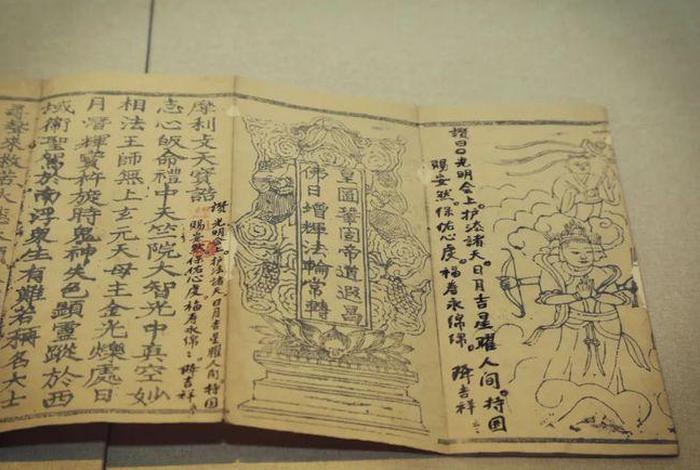 讚曰光明会上。护法諸天。日月吉星曜人间。持国
赐安然。保佑心度 福寿永绵绵。 降吉祥
皇圖鞏固帝道遐昌
佛日增輝法輪常轉
讚 光明会。护法諸天日月吉星曜人间持国
赐安然 保佑心度 福寿永绵〻 降吉祥
摩利支天寶誥
志心皈命禮中天竺院大智光中真空妙
相法王師無上玄元天母主金光爍處日
月潛輝寶杵旋時鬼神失色顯靈蹤於西
域衛聖駕於南浮衆生有難若稱名大士
尋聲來救苦大